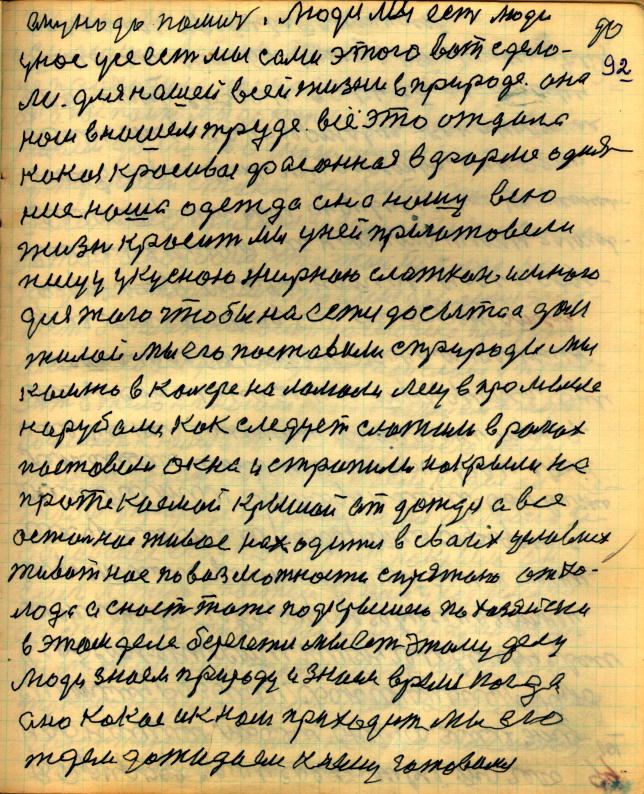 помит. Люди мы есть люди
до
92
у нас усе есть мы сами этого вот сдело-
ли. для нашей всей жизни в природе. она
нам в нашем труде. всё это отдала
какая красивая фасонная в форме одея-
ние наша одежда она нашу всю
жизн красит мы у ней приготовели
пищу укусною жирною слаткою и много
для того чтобы наести досыта а дом
жилой мы его поставили с природы мы
камню в карере наламали лесу в
нарубали, как следует сложили в рамах
поставели окна и стропили накрыли не
протекаемой крышой от дождя а все
остольное живое находится в своих условиях
животное по возможности спрятано от хо-
лода и снасть тоже под крышею по хозяйски
в этом деле берегётся мы вот этому делу
люди знаем природу и знаем время когда
оно какое и к нам приходит мы его
ждем дожидаем к нему готовомся